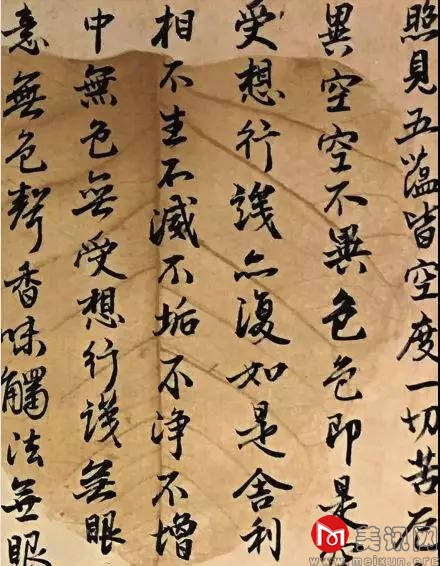 照見五蘊皆空度一切苦厄
異空空不異色色即是
受想行識亦復如是舍利
相不生不滅不垢不淨不增
中無色無受想行識無眼
意無色聲香味觸法無眼
美讯网
www.meixun.org